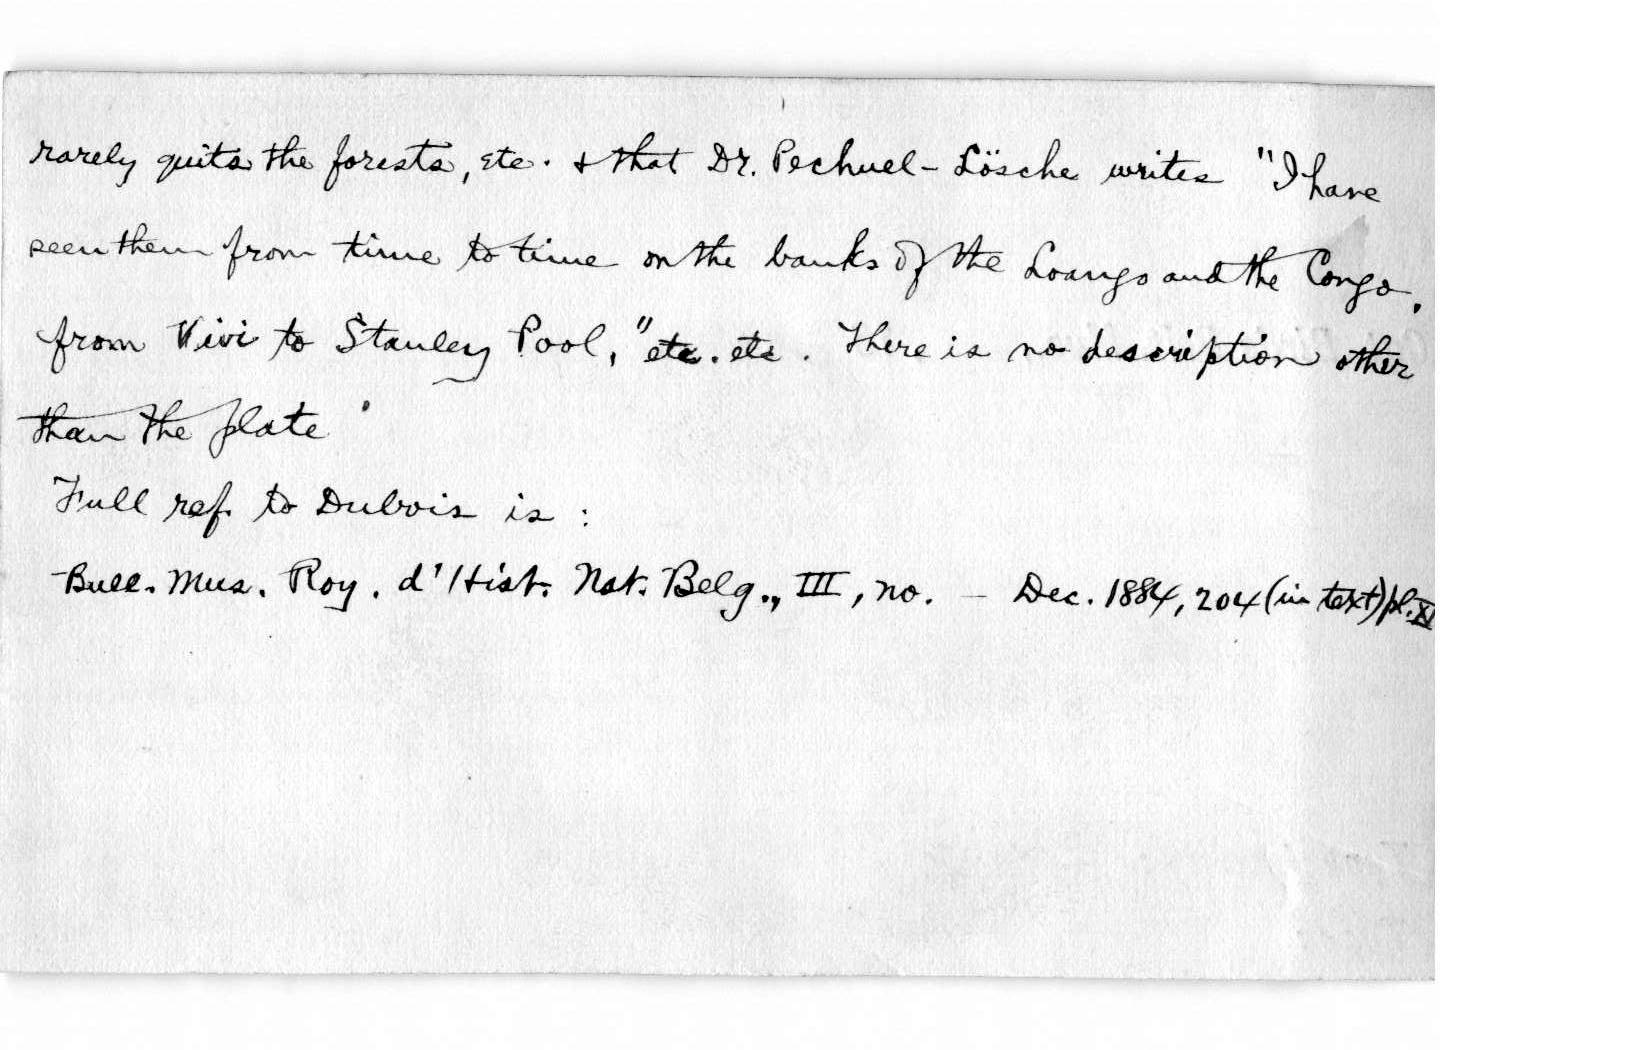 rarely quits the forests, etc. & that Dr. Pechuel-Lösche writes "I have
seen them from time to time on the banks of the Loango and the Congo,
from Vivi to Stanley Pool," etc. etc. There is no description other
than the plate.
Full ref. to Dubois is :
Bull. Mus. Roy. d'Hist. Nat. Belg., III, no. – Dec. 1884, 204 (in text) pl.